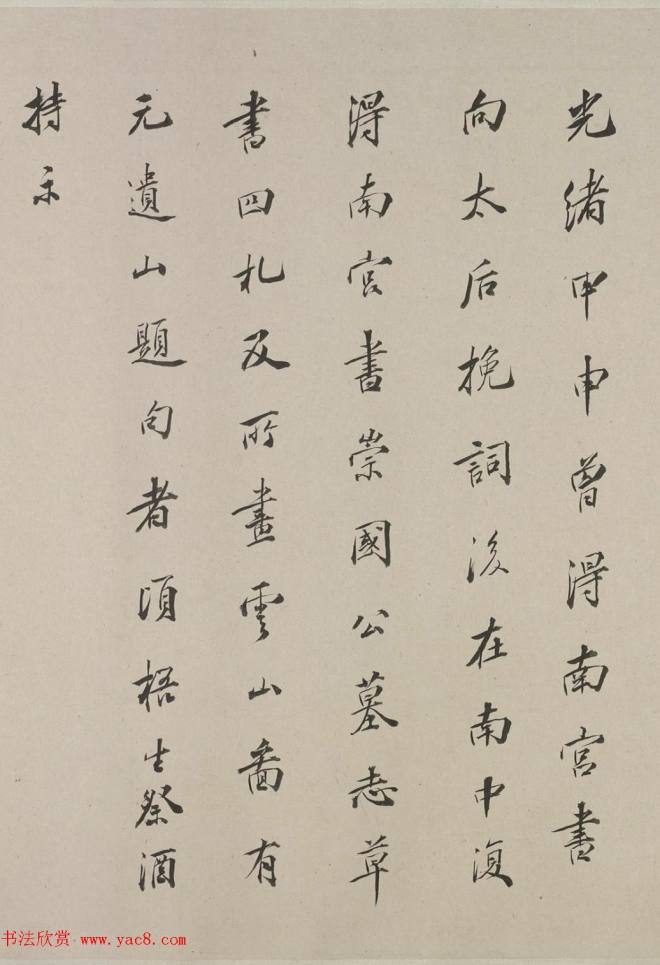 光緒甲申曾得南宮書
向太后挽詞後在南中復
得南宮書崇國公墓志草
書四札及所畫雲山畵有
元遺山題句者頃梧生祭酒
持示
书法欣赏 www.yac8.com